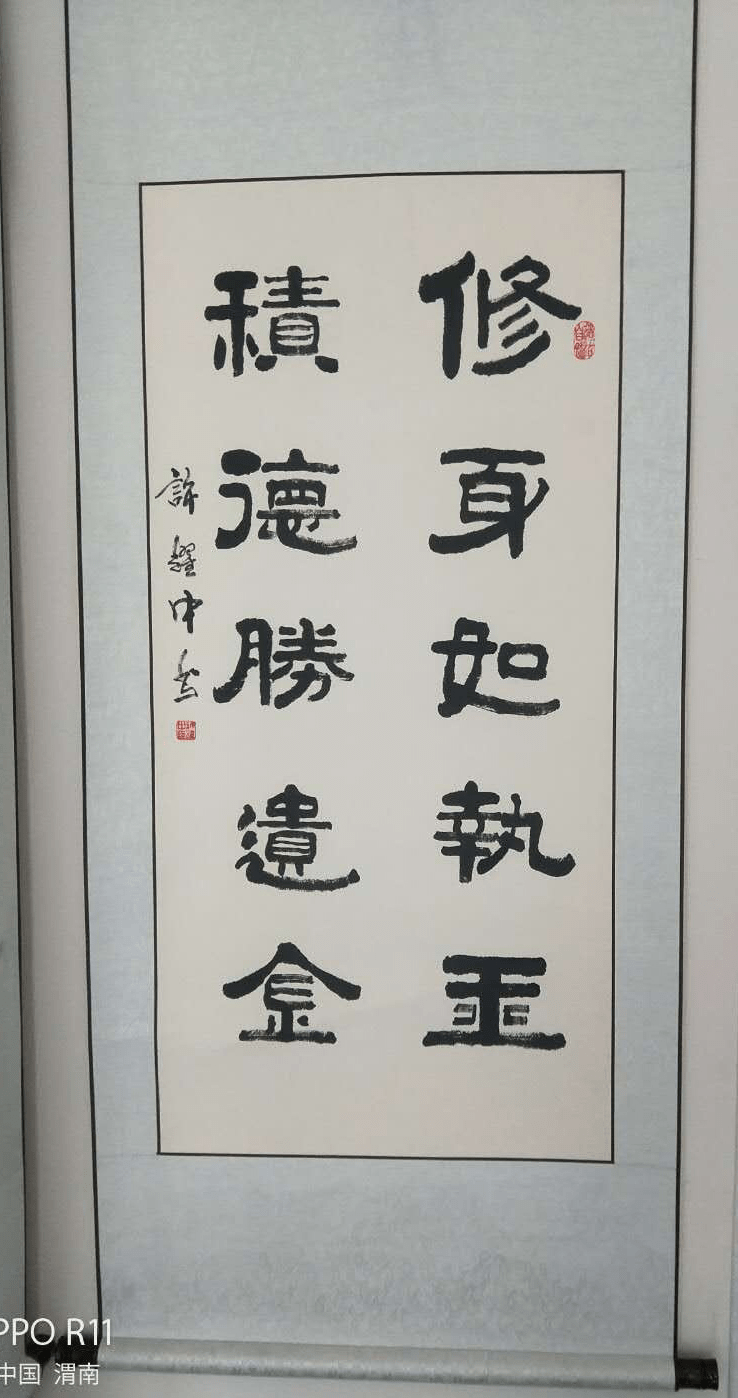 修身如執玉
積德勝遺金
許耀中書
PPO R11
中国 渭南